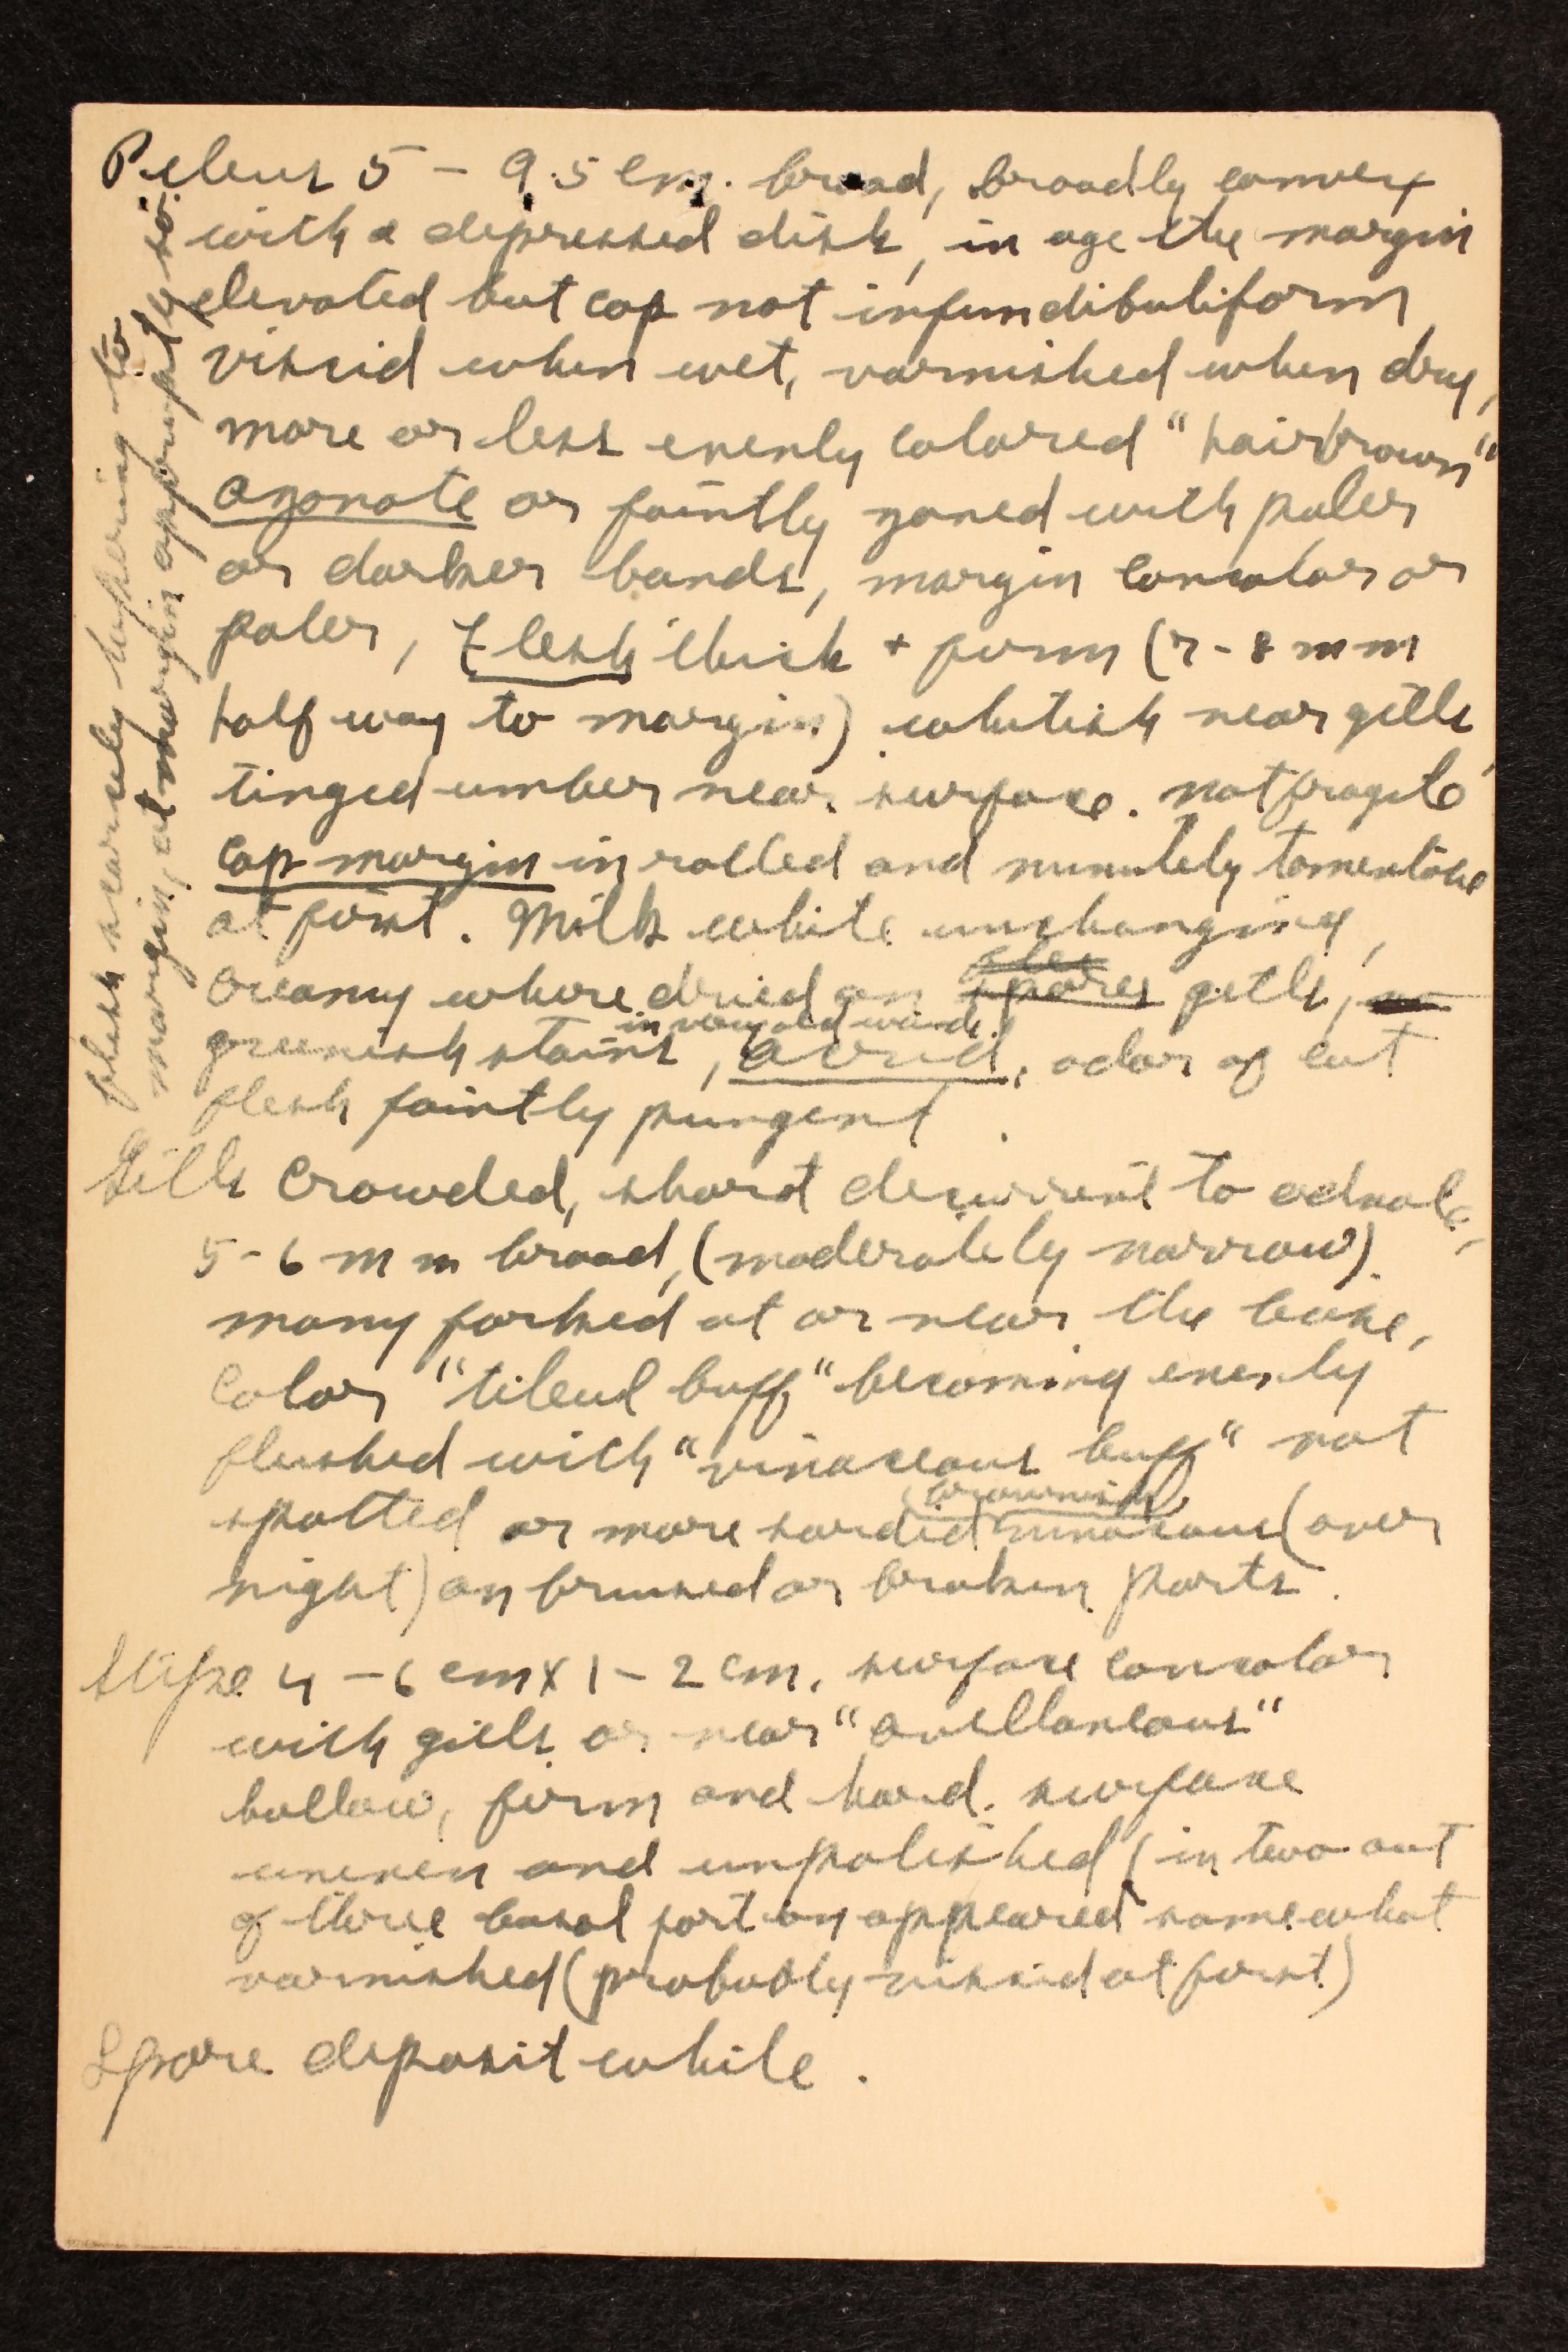 Pileus 5 - 9.5 cm. broad, broadly convex
with a depressed disk, in age the margin
elevated but cap not infundibuliform,
viscid when wet, varnished when dry,
more or less evenly colored "hair brown"
azonate or faintly zoned with paler
or darker bands, margin concolor or
paler, flesh thick + firm (7-8 mm
half way to margin) whitish near gills,
tinged umber near surface. not fragile
cap margin inrolled and minutely tomentose
at first. Milk white unchanging,
creamy where dried on spores gills,
in very old wounds
greenish stains, acrid, odor of cut
flesh faintly pungent.
Gills crowded, short decurrent to adnate,
5-6 mm broad, (moderately narrow).
many forked at or near the base,
color "tilleul buff" becoming evenly
flushed with "vinaceous buff" not
brownish
spotted or more sordid vinaceous (over
night) on bruised or broken parts.
Stipe 4-6 cm x 1-2 cm, surface concolor
with gills or near "avellaneous"
hollow, firm and hard. surface
uneven and unpolished (in two out
of three basal portion appeared somewhat
varnished (probably viscid at first)
Spore deposit white.
flesh scarcely tapering to
margin, at margin abruptly so.